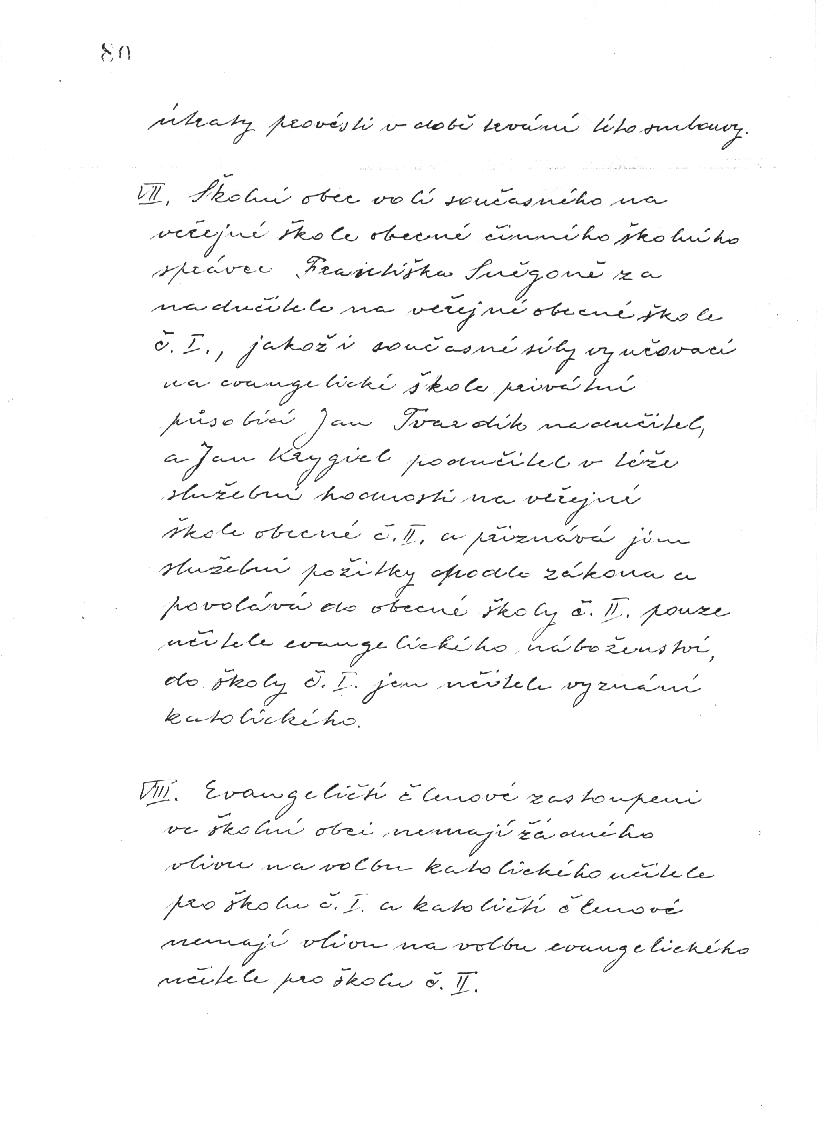 80
útraty provésti v době trvání této smlouvy.
VII. Školní obec volí současného na
veřejné škole obecné činného školního
správce Františka Sněgoně za
nadučitele na veřejné obecné škole
č. I., jakož i současné síly vyučovací
na evangelické škole privátní
působící Jan Tvardík nadučitel,
a Jan Krygiel podučitel v téže
služební hodnosti na veřejné
škole obecné č. II. a přiznává jim
služební požitky podle zákona a
povolává do obecné školy č. II. pouze
učitele evangelického náboženství,
do školy č. I. jen učitele vyznání
katolického.
VIII. Evangeličtí členové zastoupeni
ve školní obci nemají žádného
vlivu na volbu katolického učitele
pro školu č. I. a katoličtí členové
nemají vlivu na volbu evangelického
učitele pro školu č. II.